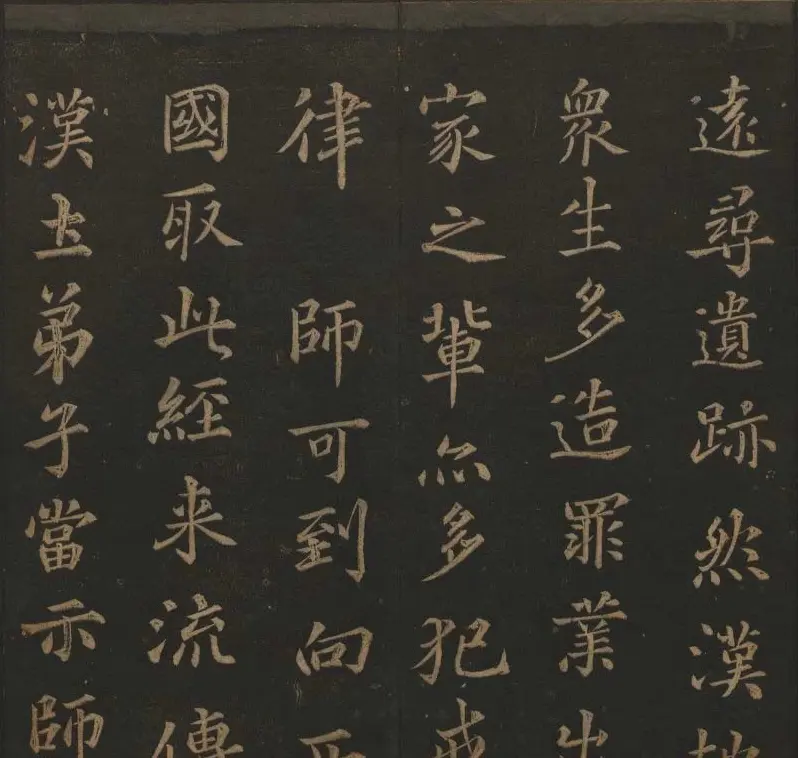 遠尋遺跡然漢地
衆生多造罪業出
家之輩亦多犯戒
律 師可到向西
國取此經来流傳
漢土弟子當示師